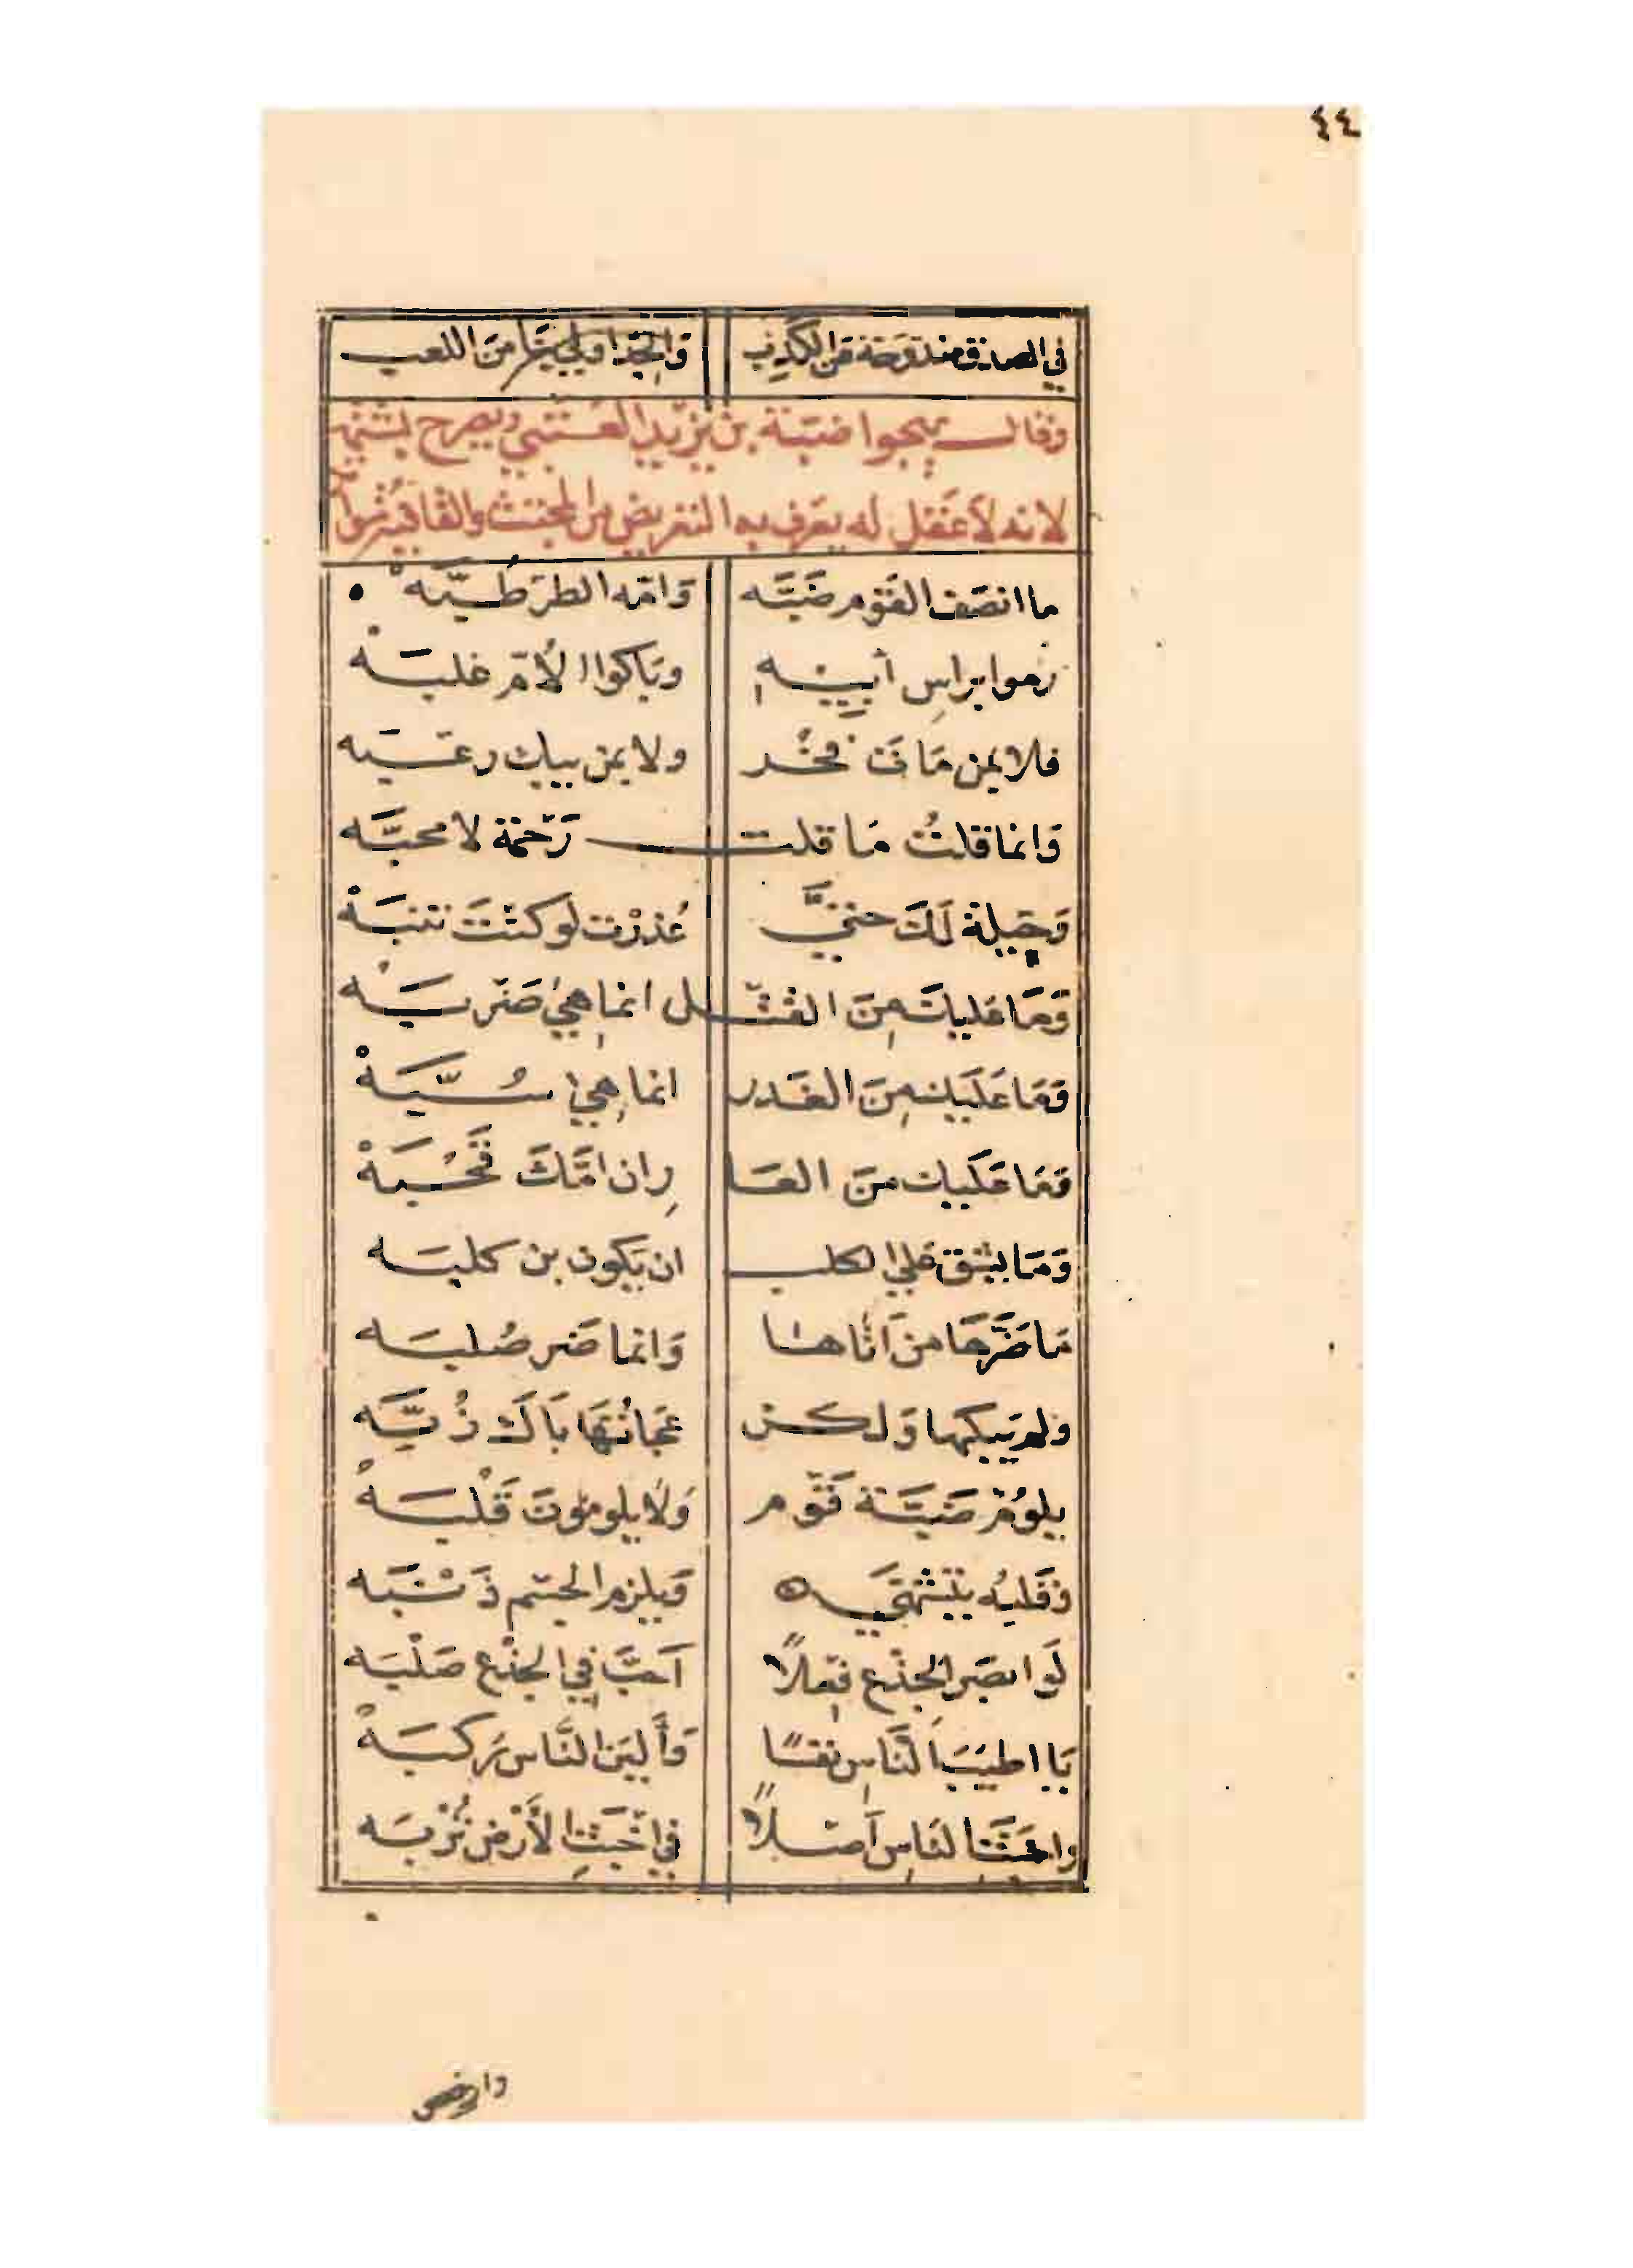 ٤٤
في الصدق مندوحة عن الكذب والجد اولي بنا من اللعب
وقال يهجوا ضبّة بن يزيد العتبي ويصرح بشتمه
لانه لا عقل له يعرف به التعريض من المجتث والقافية
ما انصف القوم ضَبَّه وَامّه الطرطُبَّه
رموا براسِ أبيهِ وبَاكوا الأمّ غلبَهْ
فلا بمن مَاتَ فخر ولا بمن نيك رغبَه
وَانما قلتُ مَا قلت رَحْمَة لا محبَّه
وَحيلة لَكَ حتيَّ عُذرْت لو كنْتَ تنبَهْ
وَمَا عليكَ مِنَ القتل انما هِيَ ضَربَهْ
وَمَا عَلَيك مِنَ الغَدر انما هِيَ سُبَّهْ
وَمَا عَلَيك منَ العَا رِان امَّكَ قَحْبَهْ
وَمَا يشق عَلي الكلب ان يَكون بن كلبَه
مَا ضَرَّهَا من اتَاها وَانما ضَر صُلبَه
ولم يَنِكها وَلكن عَجانُهَا نَاكَ زُبَّه
يلوُم ضَبَّة قَوم وَلا يلوموُنَ قَلْبَهْ
وقَلبُه يتشَهّي وَيلزم الجسم ذَنْبَه
لَو ابصَر الجذع فِعلاً اَحبَّ في الجذْع صَلْبَه
يَا اطيَبَ النَّاسِ نفسًا وَأَليَن النَّاس رُكبَهْ
واخبَثَ النَاسِ اَصلاً في اَخبَثِ الأَرْض تُرْبَه